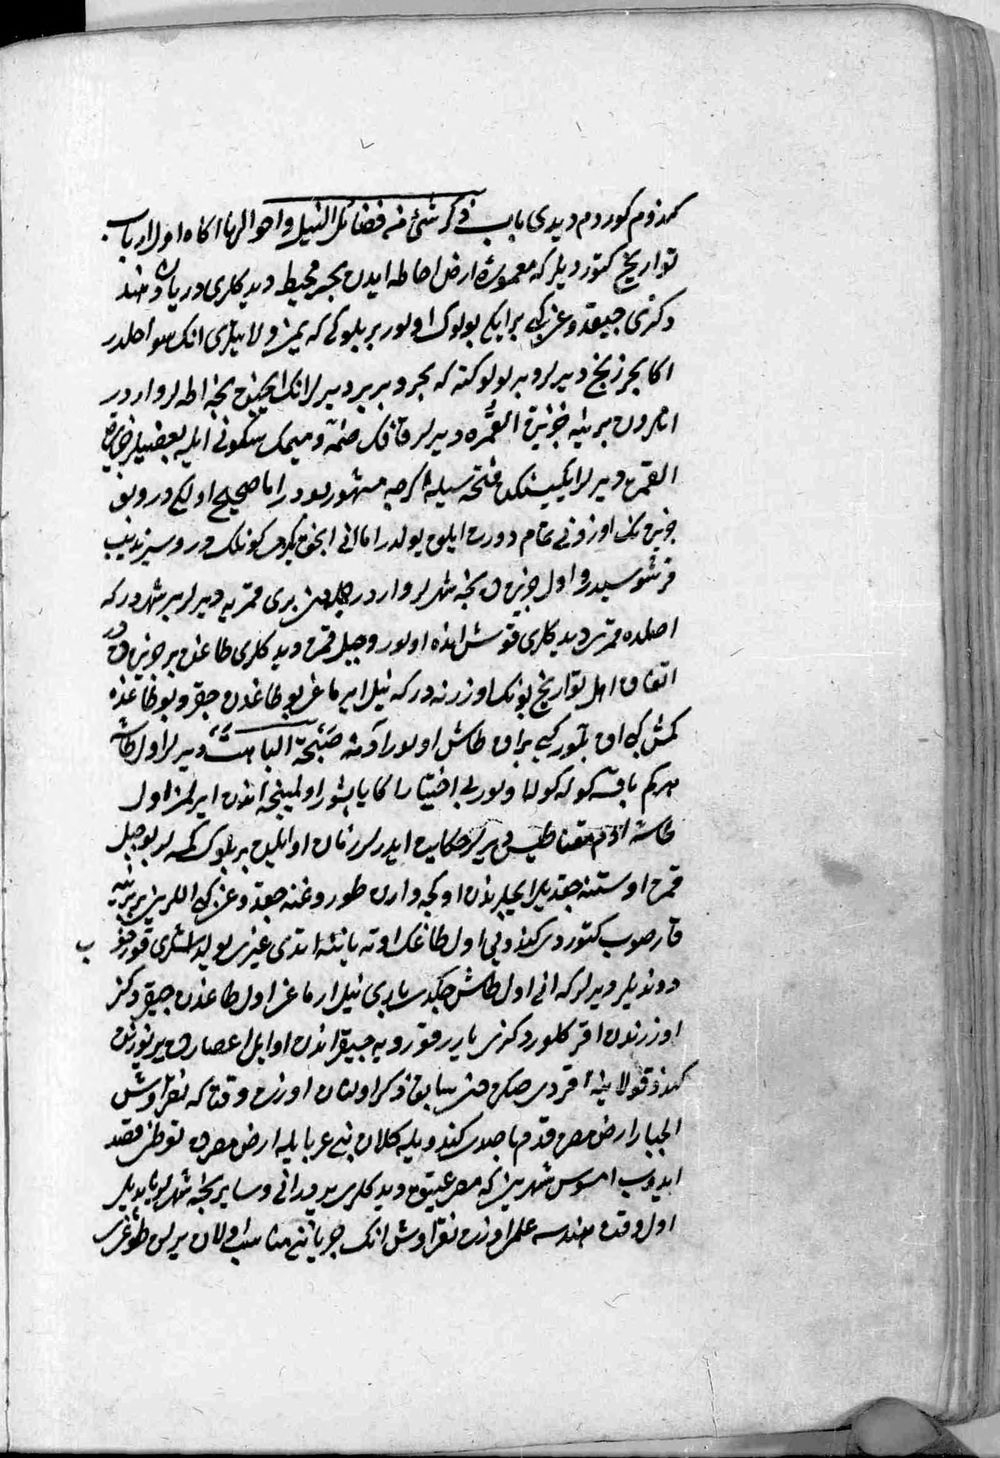 كمدوم كوردم ديدى باب فى ذكر شئ من فضائل النيل و احوالها اكاه اول ارباب
تواريخ كتورديلر كه معموره ارضى احاطه ايدن بحر محيط ديدكلرى دريادن هند
دكزى چيقدوغى كبى بر ايكى بولوك اولور بر بلوكى كه يمن ولايتلرى انك سواحلدر
اكا بحر زنج ديرلر و بر بولوكنه كه بحر بربر ديرلر انك ايچنده نچه اطه لر واردر
انلردن برينه جزيرة القمره ديرلر قافك ضمه و ميمك سكونى ايله بعضيلر جزيره
القمر ديرلر ايكيسنك فتحه سيله اكرچه مشهور بودر اما صحيح اولكيدر و بو
جزيره نك اوزونى تمام دورت ايلق يولدر اما انى ايچون يكرمى كونلك در و سرنديب
قرشوسيدر و اول جزيره ده نچه شهرلر واردر جمله دن برى قمريه ديرلر بر شهردر كه
اصلده قمرى ديدكلرى قوش انده اولور و جبل قمر ديدكلرى طاغ بو جزيره ده در
اتفاق اهل تواريخ بونك اوزرنه در كه نيل ايرماغى بو طاغدن چقر و بو طاغده
كمش كبى اق بلور كبى براق طاش اولور آدينه ضحكة الباهت ديرلر اول طاشه
هر كم باقسه كوله كوله اولور بى اختيار اكا ياپشور اولمينجه اندن ايرلمز اول
طاشه ادم مقناطيسى ديرلر حكايت ايدرلر زمان اوائلده بر بلوك كمسه لر بو جبل
قمر اوستنه چقديلر ايچلرندن اوكجه وارن طوردوغنه چقدوغى كبى اللرينى بربرينه
قارصوب كتوردى كندويى اول طاغك اوته ياننه اتدى غيرى يولداشلرى قورخوب
دونديلر ديرلر كه انى اول طاش چكدى ايدى نيل ارماغى اول طاغدن چيقر دكز
اوزرندن اقر كلور دكزى يارر قورويه چيقر اندن اوايل اعصارده ير يوزندن
كندو قولاينه اقردى صكره سابق ذكر اولنان اوزره وقتا كه نقراوش
الجبار ارض مصره قدم باصدى كندويله كلان بنى عربايله ارض مصرده توطن قصد
ايدوب امسوس شهرين كه مصر عتيق ديدكلرى يردر انى و ساير نچه شهرلر ياپديلر
اول وقت هندسه علمى اوزره نقراوش انك جرياننه مناسب اولان يرلرى طوغرى